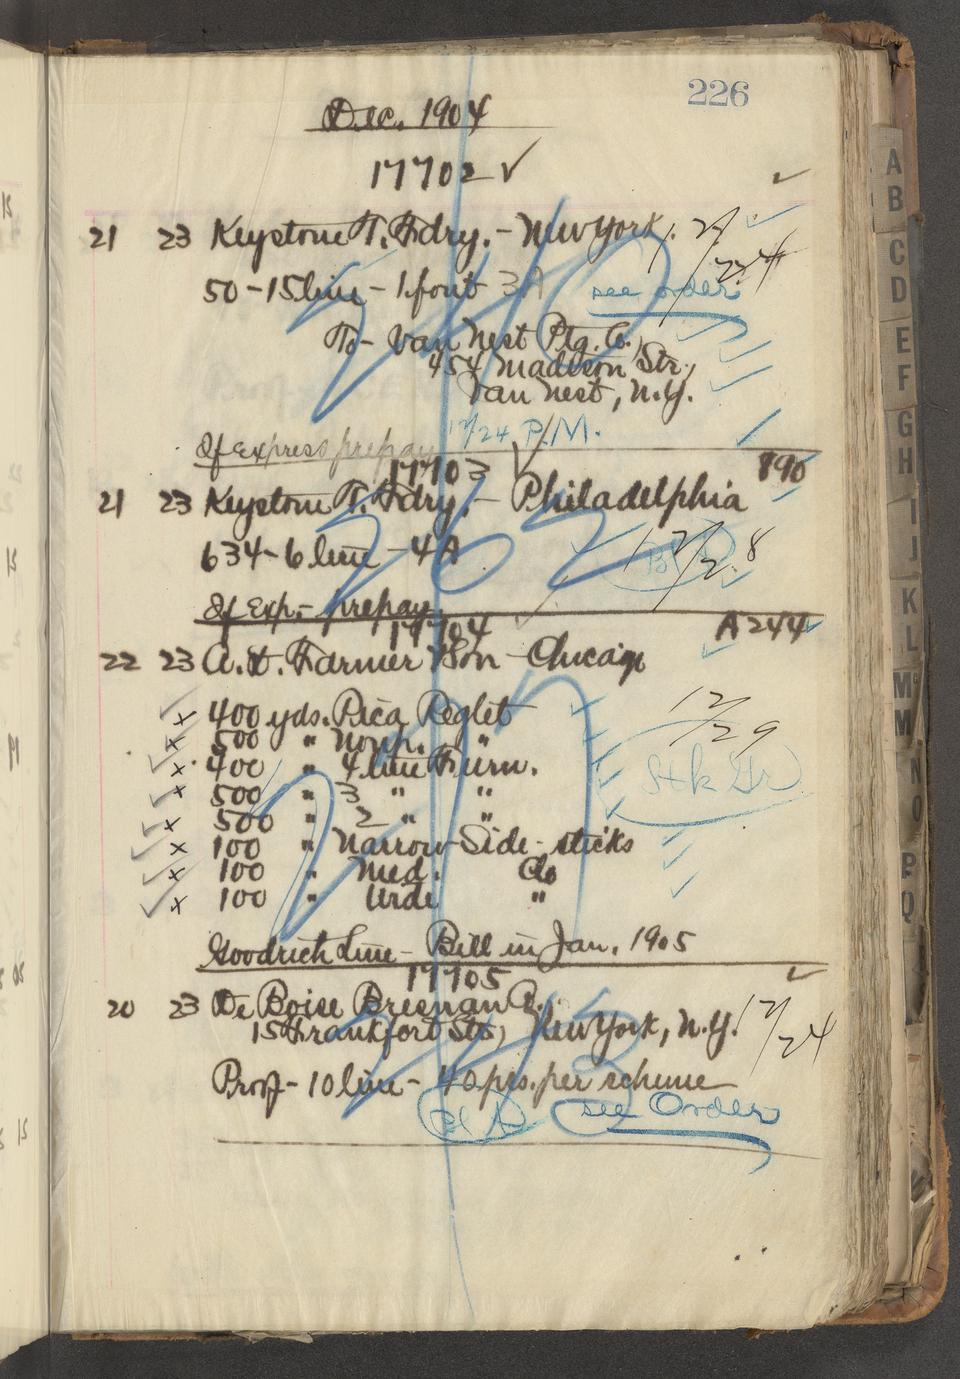 226
Dec. 1904
17702 ✓
21 23 Keystone T. Fdry. - New York,
50 - 15 line - 1 font 3A see order
To - Van Nest Ptg. Co.,
454 Madison Str.,
Van Nest, N.Y.
12/24 P.M.
If Express prepay
17703 790
21 23 Keystone T. Fdry. - Philadelphia
634 - 6 line - 4A 12/28
If Exp. - prepay
17704 A 244
22 23 A. D. Farmer & Son - Chicago
12/29
400 yds. Pica Reglet
500 " Nonp. "
400 " 4 line Furn.
Stk Gr
500 " 3 " "
500 " 2 " "
100 " Narrow Side-sticks
100 " Med. do
100 " Wide "
Goodrich Line - Bill in Jan. 1905
17705
20 23 De Boise Bresnan Co.,
15 Frankfort Str., New York, N.Y. 12/24
Prof - 10 line - 40 pcs. per scheme
see Order
A
B
C
D
E
F
G
H
I
J
K
L
Mc
M
N
O
P
Q